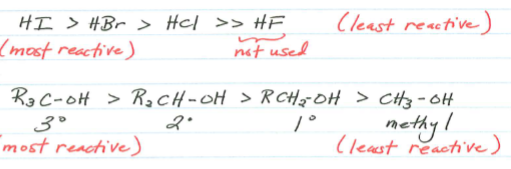 HI > HBr > HCl >> HF (least reactive)
(most reactive) not used
R₃C-OH > R₂CH-OH > RCH₂-OH > CH₃-OH
3° 2° 1° methyl
(most reactive) (least reactive)